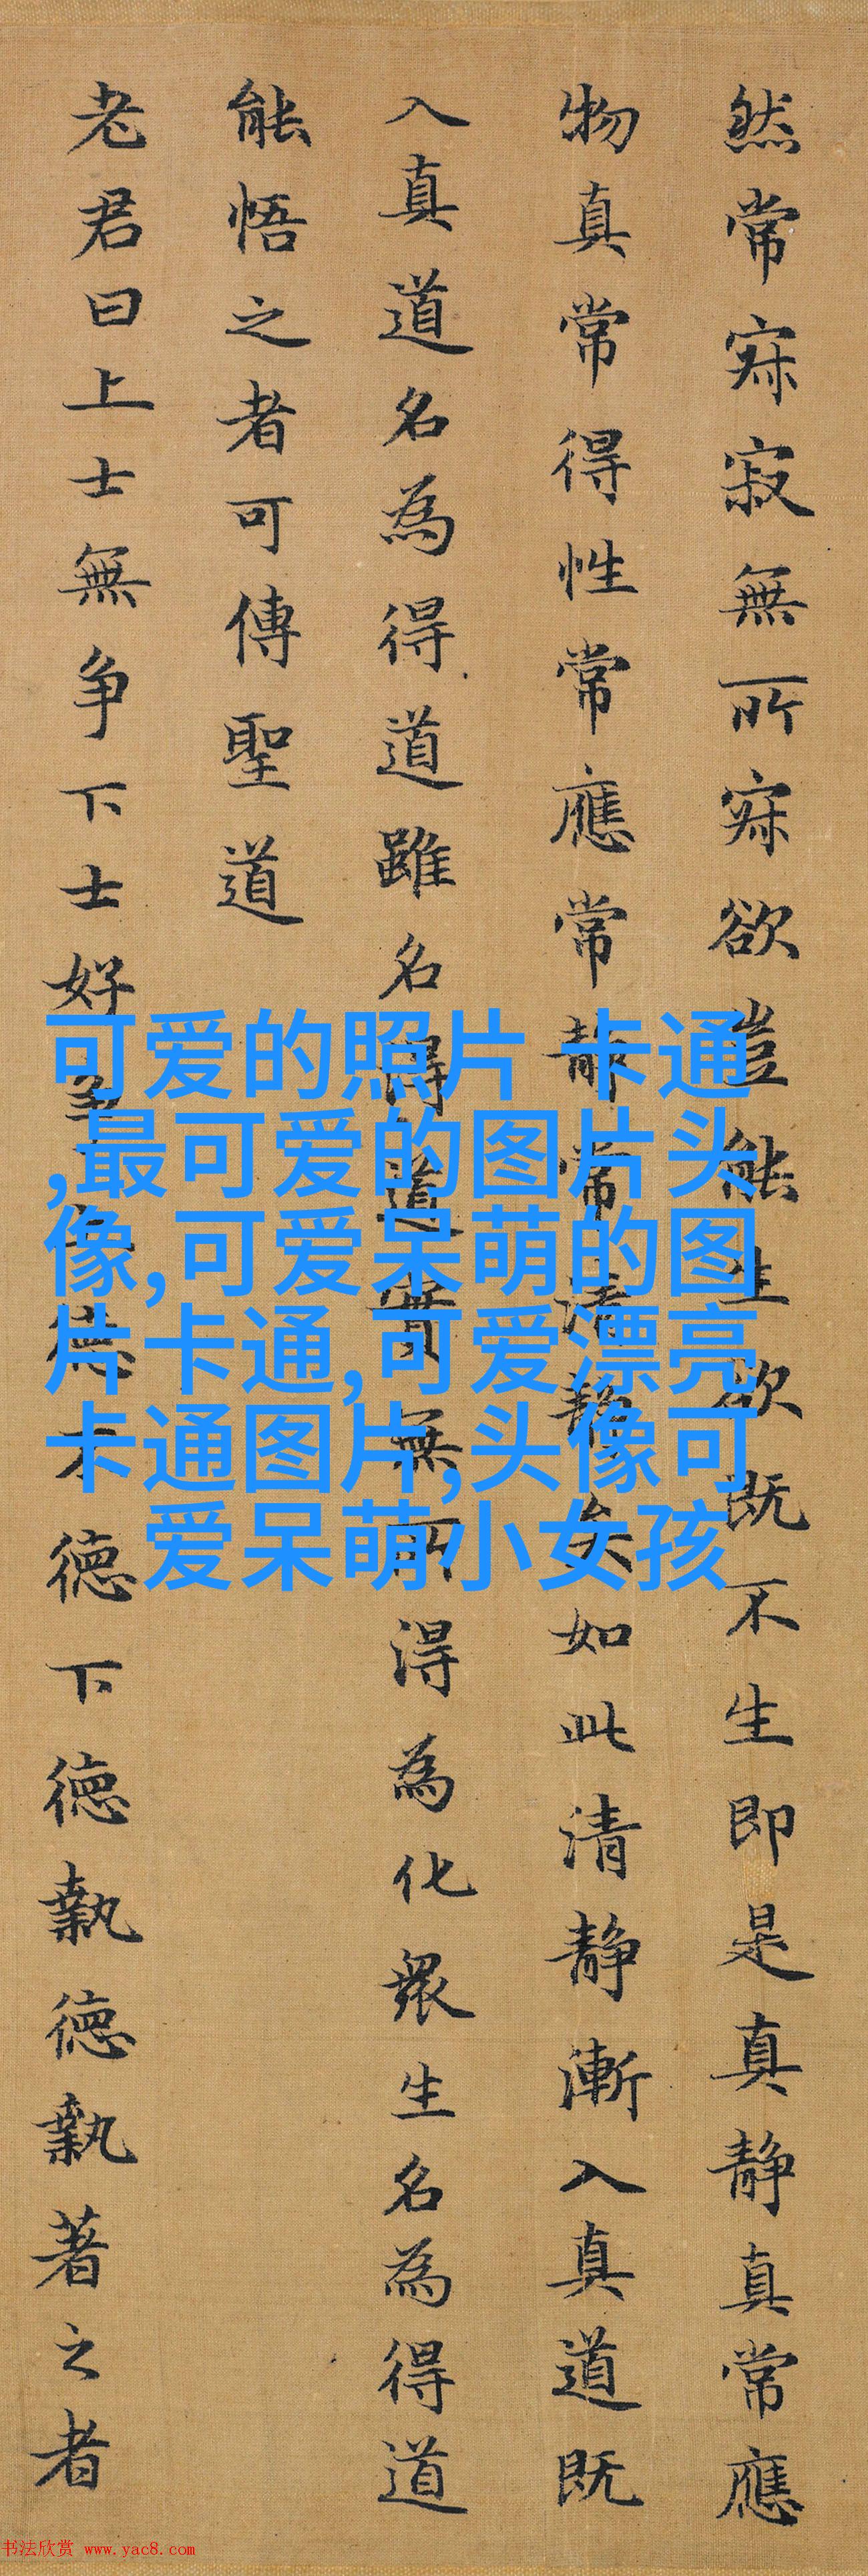 然常寂寂無所寂欲豈能生欲既不生即是真静真常應
物真常得性常應常静常清静矣如此清静漸入真道既
入真道名為得道雖名得道實無所得為化衆生名為得道
能悟之者可傳聖道
老君曰上士無争下士好争上德不德下德執德執著之者
可爱的照片 卡通
,最可爱的图片头
像,可爱呆萌的图
片卡通,可爱漂亮
卡通图片,头像可
爱呆萌小女孩
书法欣赏 www.yac8.com